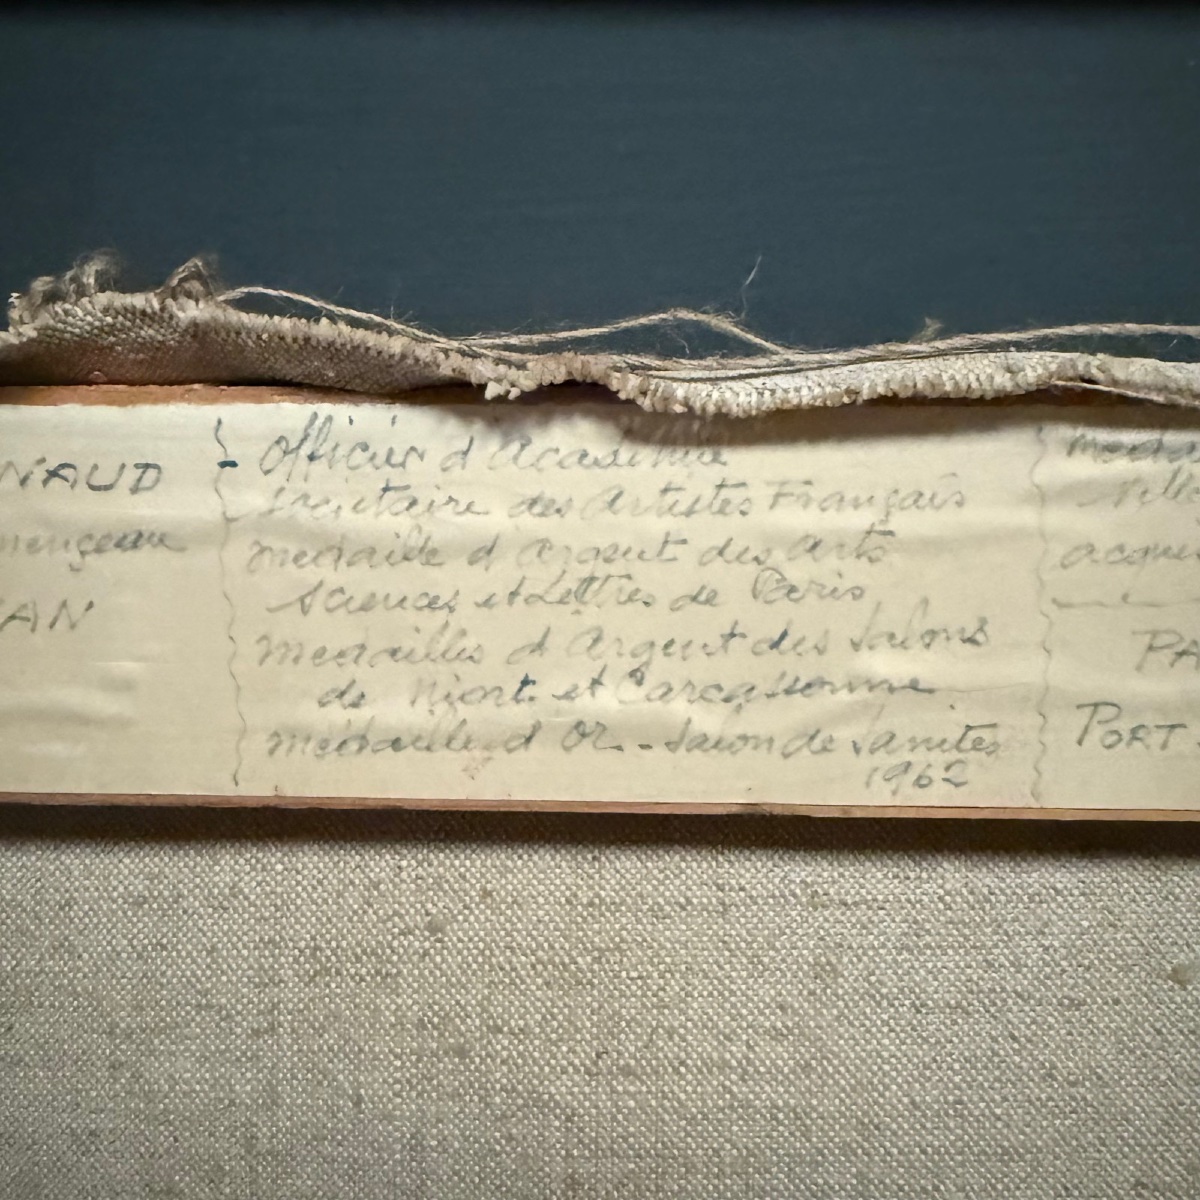 NAUD
AN
Officier d'Academie
Societaire des Artistes Français
medaille d Argent des Arts
Sciences et Lettres de Paris
Medailles d Argent des Salons
de Niort et Carcassonne
medaille d Or - Salon de Saintes
1962
PA
PORT